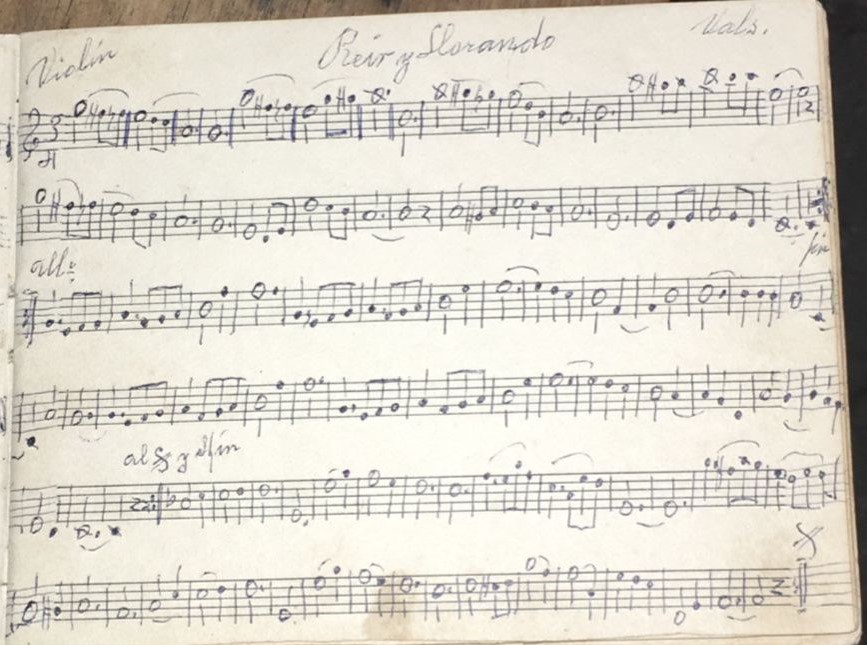 Violín Reir y Llorando Vals.
fin
all:
al 𝄋 y al fin